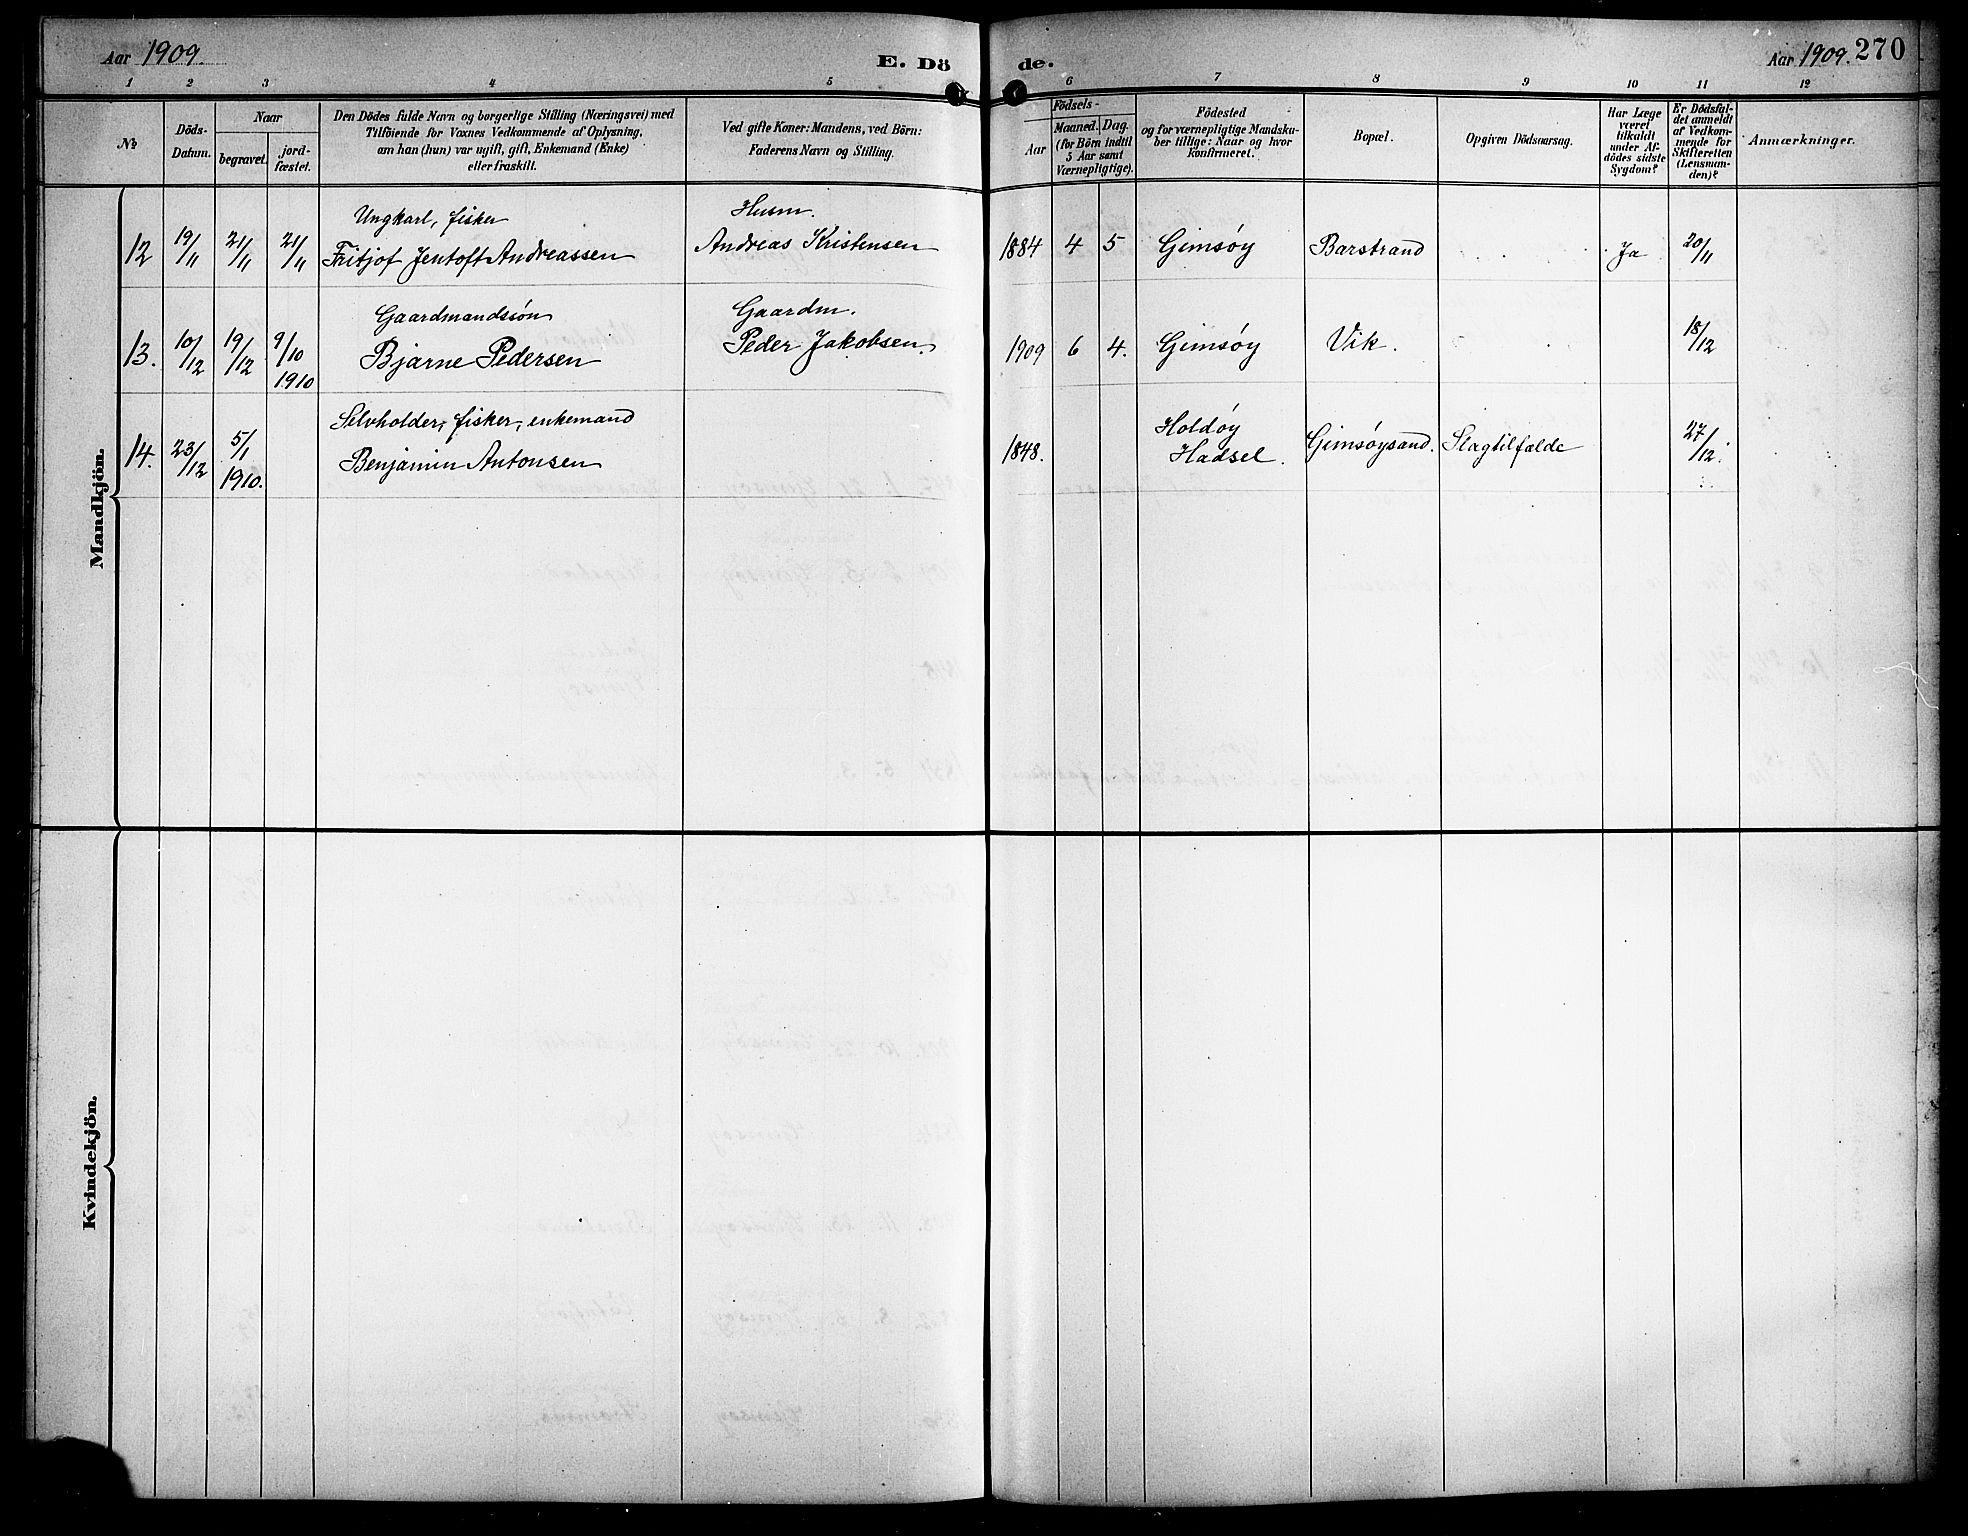 Aar 1909.
E. Dö
de.
Aar 1909. 270
1 2 3 4 5 6 7 8 9 10 11 12
No
Döds-
Datum.
Naar
begravet.
jord-
fæstet.
Den Dödes fulde Navn og borgerlige Stilling (Næringsvei) med
Tilföiende for Voxnes Vedkommende af Oplysning,
om han (hun) var ugift, gift, Enkemand (Enke)
eller fraskilt.
Ved gifte Koner: Mandens, ved Börn:
Faderens Navn og Stilling.
Födsels-
Aar
Maaned.
Dag.
(for Börn indtil
5 Aar samt
Værnepligtige).
Födested
og for værnepligtige Mandsku-
ber tillige: Naar og hvor
konfirmeret.
Bopæl.
Opgiven Dödsaarsag.
Har Læge
været
tilkaldt
under Af-
dödes sidste
Sygdom?
Er Dödsfal-
det anmeldt
af Vedkom-
mende for
Skifteretten
(Lensman-
den)?
Anmærkninger.
Mandkjön.
12 19/11 21/11 21/11 Ungkarl, fisker
Fritjof Jentoft Andreassen
Husm.
Andreas Kristensen
1884 4 5 Gimsøy Barstrand Ja 20/11
13. 10/12 19/12 9/10
1910
Gaardmandssön
Bjarne Pedersen
Gaardm.
Peder Jakobsen.
1909 6 4. Gimsøy Vik. 18/12
14. 23/12 5/1
1910.
Selvholder, fisker, enkemand
Benjamin Antonsen
1848. Holdøy
Hadsel. Gimsøysand. Slagtilfælde 27/12.
Kvindekjön.